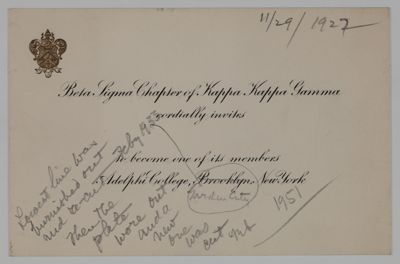 11/29/1927
Beta Sigma Chapter of Kappa Kappa Gamma
cordially invites
to become one of its members
Adelphi College, Brooklyn, New York
Garden City
1951
line was
burnished out
and re-cut
Then the
plate
wore out
and a
new
one
was
cut